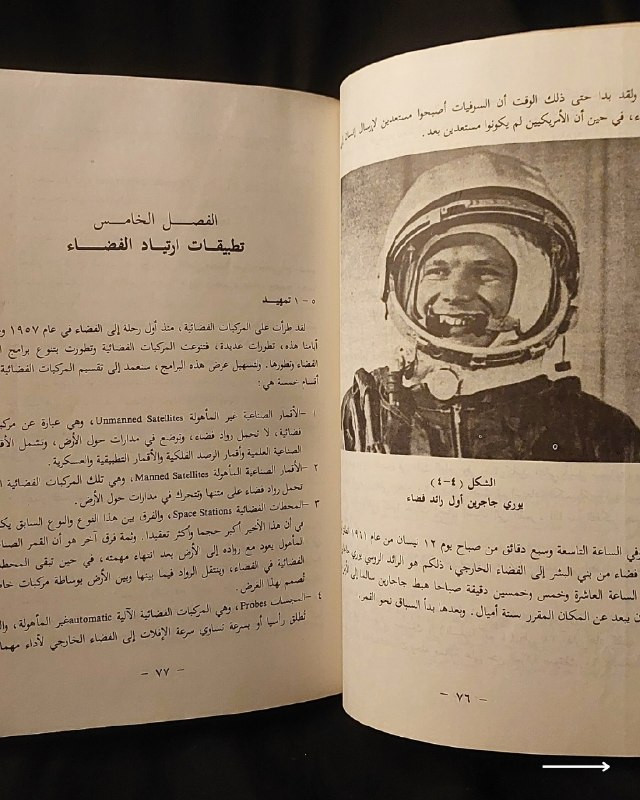 ولقد بدا حتى ذلك الوقت أن السوفيات أصبحوا مستعدين لإرسال إنسان
، في حين أن الأمريكيين لم يكونوا مستعدين بعد.
الشكل (٤-٤)
يوري جاجرين أول رائد فضاء
في الساعة التاسعة وسبع دقائق من صباح يوم ١٢ نيسان من عام ١٩٦١
فضاء من بني البشر إلى الفضاء الخارجي، ذلكم هو الرائد الروسي يوري
الساعة العاشرة وخمس وخمسين دقيقة صباحا هبط جاجارين سالما إلى
يبعد عن المكان المقرر بستة أميال. وبعدها بدأ السباق نحو القمر.
- ٧٦ -
الفصل الخامس
تطبيقات ارتياد الفضاء
٥-١ تمهيد
لقد طرأت على المركبات الفضائية، منذ أول رحلة إلى الفضاء في عام ١٩٥٧
أيامنا هذه، تطورات عديدة، فتنوعت المركبات الفضائية وتطورت بتنوع برامج
الفضاء وتطورها. ولتسهيل عرض هذه البرامج، سنعمد إلى تقسيم المركبات الفضائية
أقسام خمسة هي:
١ -الأقمار الصناعية غير المأهولة Unmanned Satellites، وهي عبارة عن
فضائية، لا تحمل رواد فضاء، وتوضع في مدارات حول الأرض، وتشمل
الصناعية العلمية وأقمار الرصد الفلكية والأقمار التطبيقية والعسكرية.
٢ -الأقمار الصناعية المأهولة Manned Satellites، وهي تلك المركبات الفضائية
تحمل رواد فضاء على متنها وتتحرك في مدارات حول الأرض.
٣ -المحطات الفضائية Space Stations، والفرق بين هذا النوع والنوع السابق
في أن هذا الأخير أكبر حجما وأكثر تعقيدا. وثمة فرق آخر هو أن القمر
المأهول يعود مع رواده إلى الأرض بعد انتهاء مهمته، في حين تبقى
الفضائية في الفضاء، وينتقل الرواد فيما بينها وبين الأرض بوساطة مركبات
تصمم لهذا الغرض.
٤ -المجسات Probes، وهي المركبات الفضائية الآلية automatic غير المأهولة،
تطلق رأسيا أو بسرعة تساوي سرعة الإفلات إلى الفضاء الخارجي لأداء
- ٧٧ -